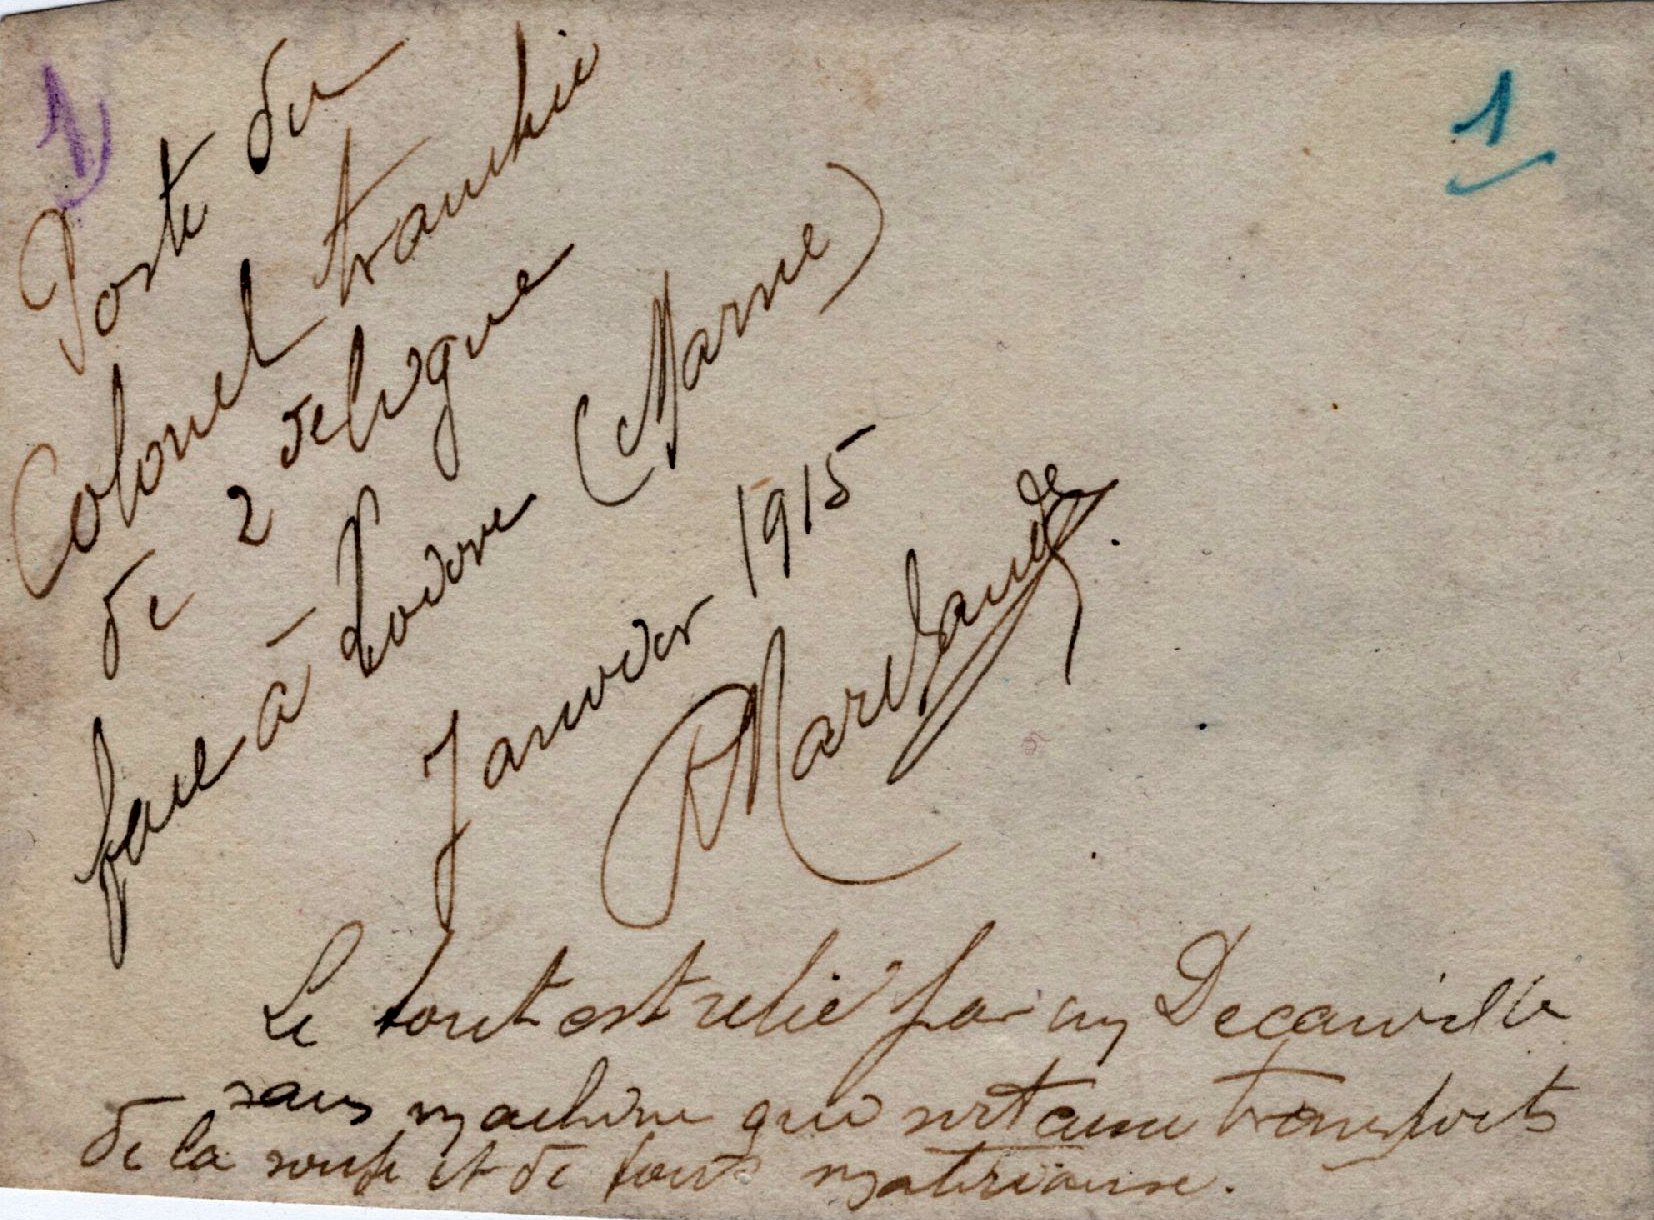 1
1
Poste du
Colonel tranchée
de 2e ligne
face à
(Marne)
Janvier 1915
Le tout est relié par un Decauville
sans machine qui sert aux transports
de la soupe et de tous matériaux.